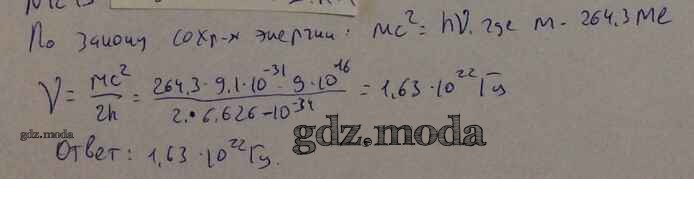 По закону сохр-я энергии: mc² = hν. где m - 264,3 me
ν = mc²/2h = 264,3 · 9,1 · 10⁻³¹ · 9 · 10¹⁶ / 2 · 6,626 - 10⁻³⁴ = 1,63 · 10²² Гц
gdz.moda
gdz.moda
Ответ: 1,63 · 10²² Гц.